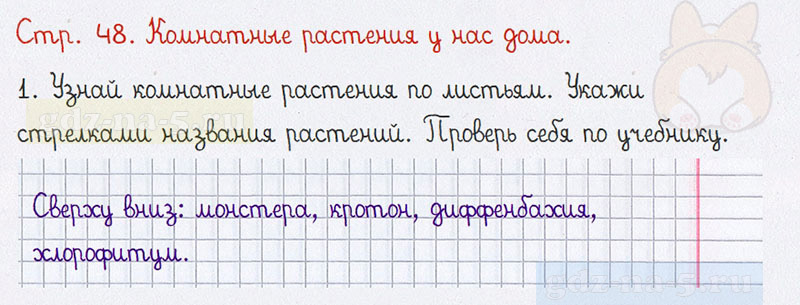 Стр. 48. Комнатные растения у нас дома.
1. Узнай комнатные растения по листьям. Укажи
стрелками названия растений. Проверь себя по учебнику.
Сверху вниз: монстера, кротон, диффенбахия,
хлорофитум.
gdz-na-5.ru
gdz-na-5.ru